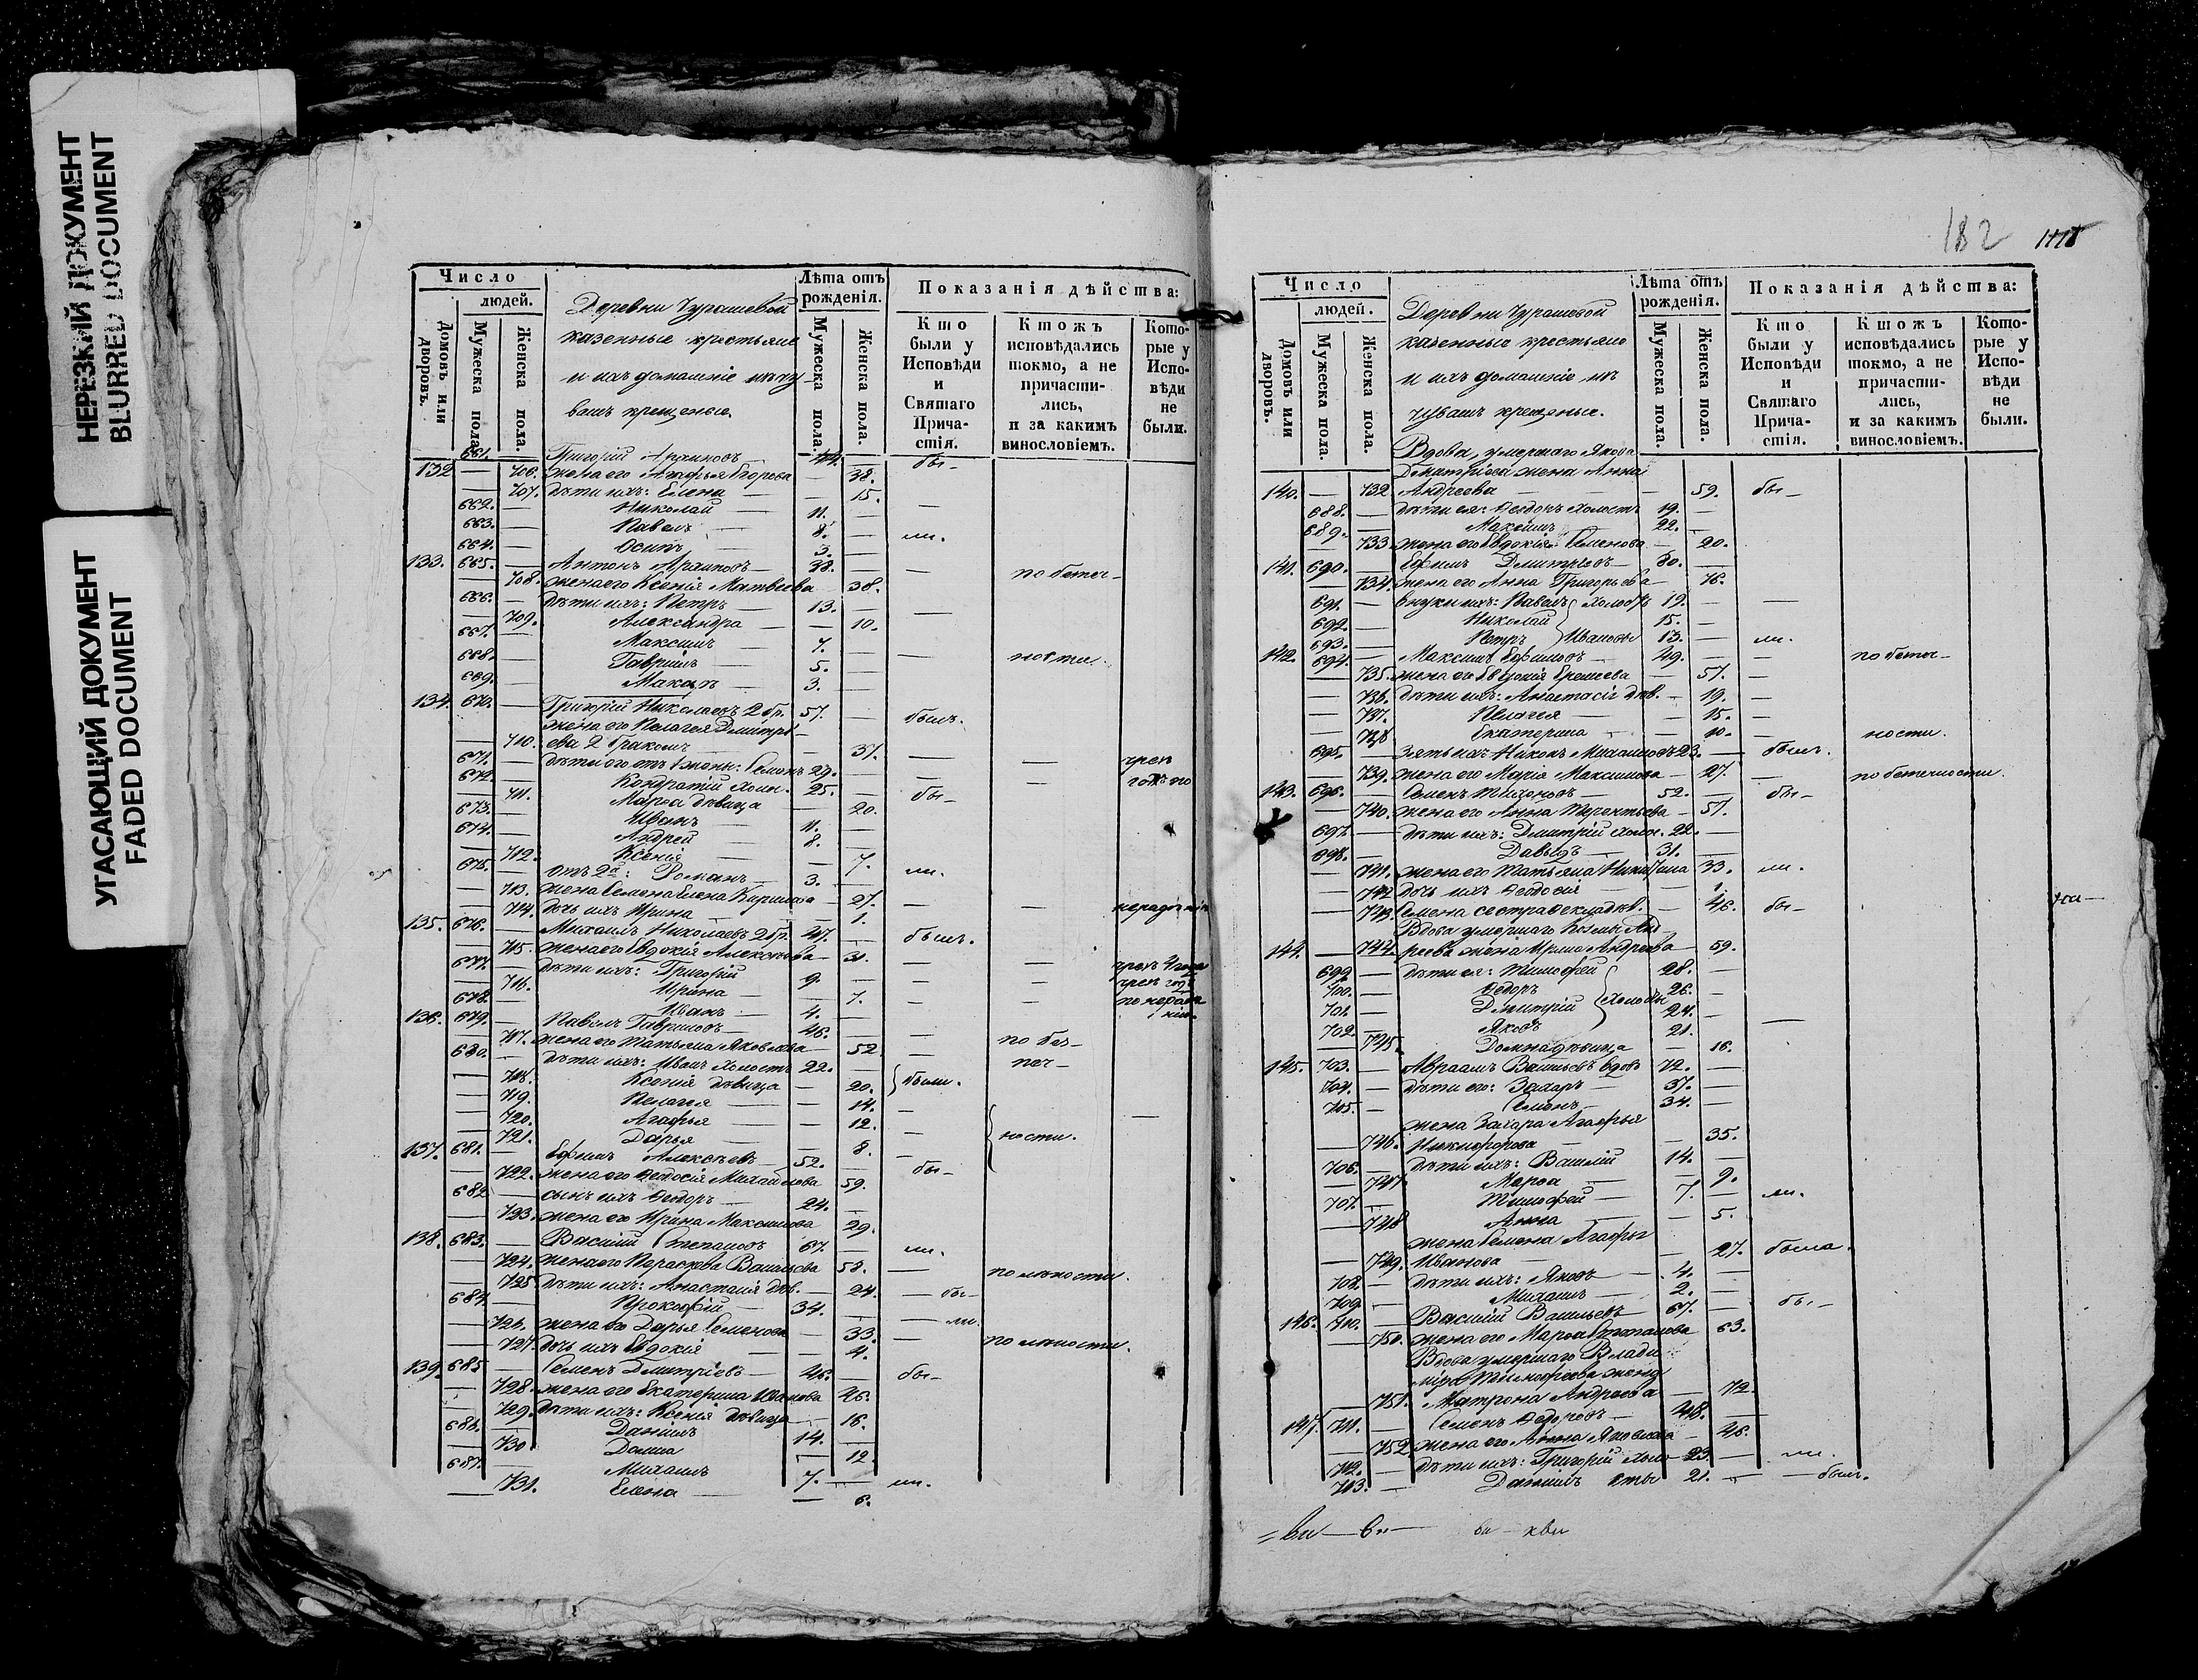 НЕРЕЗКИЙ ДОКУМЕНТ
BLURRED DOCUMENT
УГАСАЮЩИЙ ДОКУМЕНТ
FADED DOCUMENT
Число
людей.
Домовъ или дворовъ.
Мужеска пола.
Женска пола.
Деревни Чурашевой
казенные крестьяне
и ихъ домашніе изъ чу
вашъ крещеные.
Лѣта отъ рожденія.
Мужеска пола.
Женска пола.
Показанія дѣйства:
Кто были у Исповѣди и Святаго Прича-стія.
Ктожъ исповѣдались токмо, а не причасти-лись, и за какимъ винословіемъ.
Кото-рые у Испо-вѣди не были.
661. Григорій 44. бы-
132 — 706. жена его Агафья Егорова — 38.
— 707. дѣти ихъ: Елена — 15.
662. — Николай — 11. —
663. — Павелъ — 8. —
664. — Осипъ — 3. — ли.
133. 665. — Антонъ 38. —
— 708. жена его Ксенія Матвеева 38. по
666. — дѣти ихъ: Петръ — 13. —
— 709. Александра — — 10.
667. — Максимъ — 7. —
668. — Гаврiилъ — 5. — ности.
669. — Макаръ — 3. —
134. 670. — Григорій Николаевъ 2 бр. 57. — былъ.
жена его Пелагея Дмитрі-
— 710. ева 2 бракомъ — 37. —
671. — дѣти его отъ 1 жены: Семенъ 29. —
672. — Кондратій холос. 25. —
— 711. Марѳа дѣвица — 20. бы-
673. — Иванъ — 11. —
674. — Андрей — 8. —
— 712. Ксенія — — 7.
675. — отъ 2й: Романъ — 3. — ли.
— 713. жена Семена Елена Кирилова — 27. —
— 714. дочь ихъ Ирина — — 1.
135. 676. — Михаилъ Николаевъ 2 бр. 47. — былъ.
— 715. жена его Евдокія Алексѣева — 31. —
677. — дѣти ихъ: Григорій 9. —
— 716. Ирина — — 7.
678. — Иванъ — 4. —
136. 679. — Павелъ Гавриловъ — 46. —
— 717. жена его Татьяна Яковлева — 52 — по без-
680. — дѣти ихъ: Иванъ холостъ 22. — печ-
— 718. Ксенія дѣвица — 20. были.
— 719. Пелагея — — 14. —
— 720. Агафья — — 12. —
— 721. Дарья — — 8. — ности.
137. 681. — Ефимъ Алексѣевъ — 52. —
— 722. жена его Ѳедосія Михайлова 59. бы-
682 — сынъ ихъ Ѳеодоръ — 24. —
— 723. жена его Ирина Максимова 29.
138. 683. — Василій Степановъ 67. — ли.
— 724. жена его Параскева Васильева 58. — по лѣности.
— 725 дѣти ихъ: Анастасія дѣв. — 24. — бы-
684 — Прокофій — 34. —
— 726. жена его Дарья Семенова — 33. — ли.
— 727. дочь ихъ Евдокія — 4. по лѣности.
139. 685 — Семенъ Дмитріевъ — 46. — бы-
— 728. жена его Екатерина Иванова 46.
— 729. дѣти ихъ: Ксенія дѣвица — 16.
686. — Даніилъ 14. —
— 730 Домна — 12.
687. — Михаилъ 7. —
— 731. Елена — — 6. ли.
182
Число
людей.
Домовъ или дворовъ.
Мужеска пола.
Женска пола.
Деревни Чурашевой
казенные крестьяне
и ихъ домашніе изъ
чувашъ крещеные.
Лѣта отъ рожденія.
Мужеска пола.
Женска пола.
Показанія дѣйства:
Кто были у Исповѣди и Святаго Прича-стія.
Ктожъ исповѣдались токмо, а не причасти-лись, и за какимъ винословіемъ.
Кото-рые у Испо-вѣди не были.
Вдова, умершаго Якова
Дмитріева жена Анна
140. — 732. Андреева — 59. бы-
688. — дѣти ея: Ѳеодоръ холостъ 19. —
689. — Максимъ — 22. —
— 733. жена его Евдокія Семенова — 20.
141. 690. — Ефимъ Дмитріевъ — 80. —
— 734. жена его Анна Григорьева — 76.
691. — внуки ихъ: Павелъ холостъ 19. — —
692. — Николай 15. —
693. — Петръ Ивановы 13. — ли.
142. 694. — Максимъ Ефимовъ — 49. — —
— 735. жена его Евдокія 51. —
— 736. дѣти ихъ: Анастасія дѣв. — 19. —
— 737. Пелагея — 15. —
— 738 Екатерина — 10. — ности.
695. — зять ихъ Никонъ Михайловъ 23. — былъ.
— 739. жена его Марія Максимова — 27. — по безпечности.
143. 696. — Семенъ 52. — бы-
— 740. жена его Анна Терентьева — 51.
697. — дѣти ихъ: Дмитрій холос. 22. —
698. — Давыдъ — 31. —
— 741. жена его Татьяна Никитина 33. ли.
— 742 дочь ихъ Ѳеодосія — — 1.
— 743. Семена сестра Ѳекла дѣв. — 46. бы-
Вдова умершаго Козмы Анд
144. — 744. реева жена Ирина Андреева — 59.
699 — дѣти ея: Тимофей 28. —
700. — Ѳедоръ 26. —
701. — Дмитрій холосты 24. —
702. — Яковъ 21. —
— 745. Домна дѣвица — 16.
145. 703. — Авраамъ Васильевъ вдовъ 72. —
704. — дѣти его: Захаръ — 37. —
705. — Семенъ — 34. —
жена Захара Агафья
— 746. Никифорова — — 35.
706. — дѣти ихъ: Василій 14. —
— 747 Марѳа — — 9.
707. — Тимофей — 7. — ли.
— 748 Анна — — 5.
жена Семена Агафья
— 749. Иванова — — 27. была.
708. — дѣти ихъ: Яковъ — 4. —
709. — Михаилъ — 2. —
146. 710. — Василій Васильевъ — 67. — бы-
— 750. жена его Марѳа Степанова 63.
Вдова умершаго Влади
міра Тимофеева жена
— 751. Матрона Андреева — 72.
147. 711. — Семенъ Ѳедоровъ — 48. —
— 752. жена его Анна Яковлева — 46.
712. — дѣти ихъ: Григорій холо- 23. — ли.
713. — Даніилъ сты 21. — былъ.